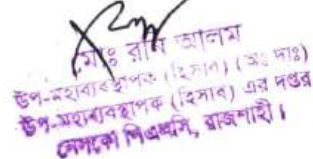 মোঃ রানা আলম
উপ-মহাব্যবস্থাপক (হিসাব) (অঃ দাঃ)
উপ-মহাব্যবস্থাপক (হিসাব) এর দপ্তর
নেসকো পিএলসি, রাজশাহী।